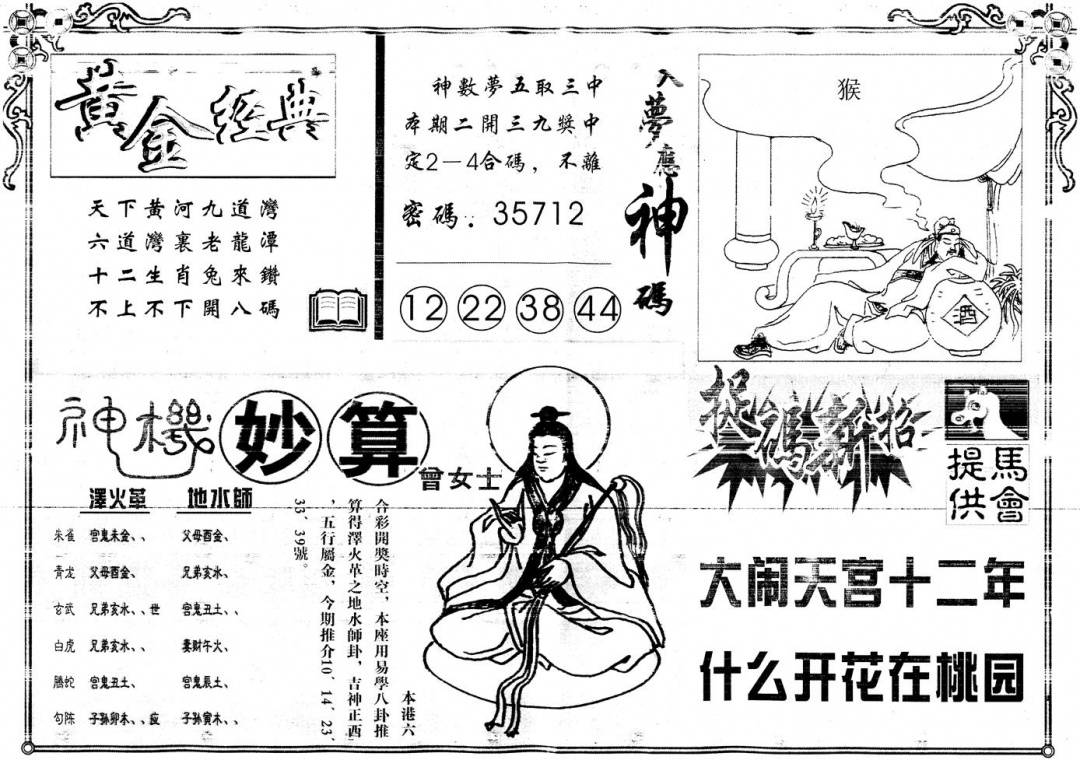 黃金經典
天下黃河九道灣
六道灣裏老龍潭
十二生肖兔來鑽
不上不下開八碼
神數夢五取三中
本期二開三九獎中
定2—4合碼，不離
密碼：35712
12 22 38 44
入夢應神碼
猴
酒
神機妙算
曾女士
澤火革 地水師
朱雀 官鬼未金、、 父母酉金、
青龙 父母酉金、 兄弟亥水、
玄武 兄弟亥水、、世 官鬼丑土、、
白虎 兄弟亥水、、 妻财午火、
騰蛇 官鬼丑土、 官鬼辰土、
勾陈 子孙卯未、、应 子孙寅木、、
本港六
合彩開獎時空，本座用易學八卦推
算得澤火革之地水師卦，吉神正西
，五行屬金，今期推介10、14、23、
33、39號。
捉碼新招
馬會
提供
大闹天宫十二年
什么开花在桃园